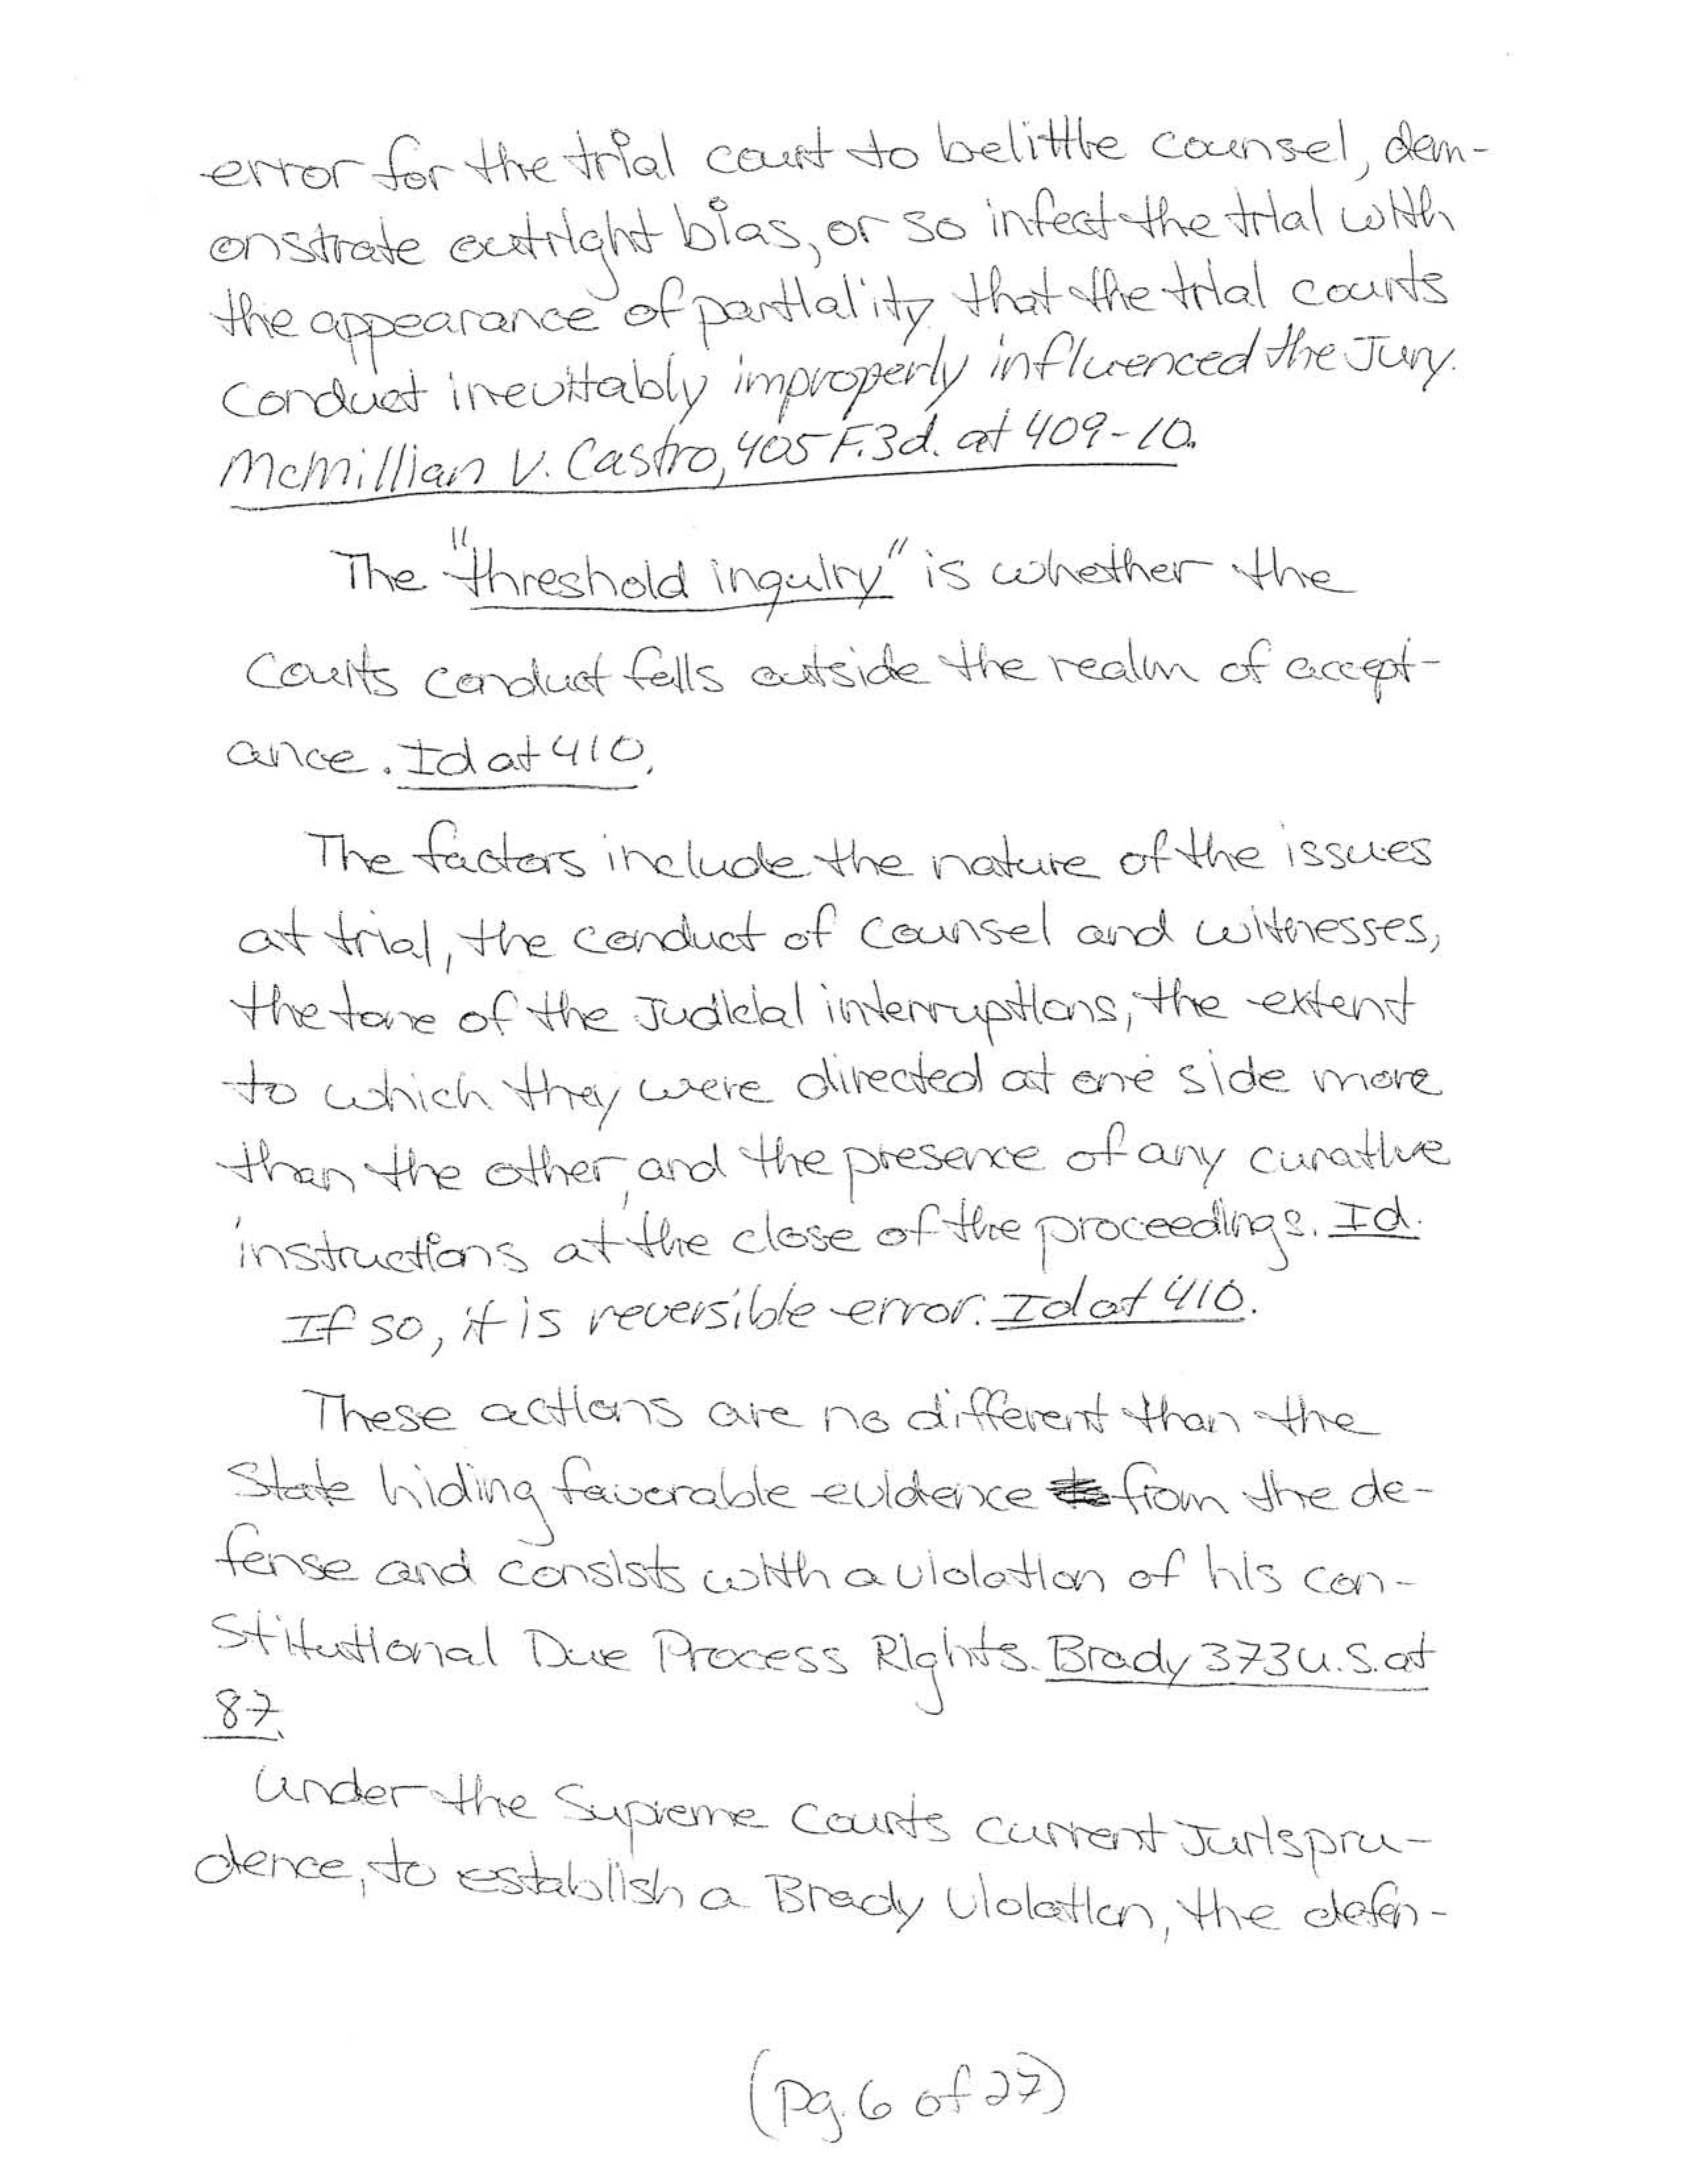 error for the trial court to belittle counsel, dem-
onstrate outright bias, or so infect the trial with
the appearance of partiality that the trial courts
Conduct inevitably improperly influenced the Jury.
McMillian V. Castro, 405 F.3d. at 409-10.
The "threshold inquiry" is whether the
Courts conduct falls outside the realm of accept-
ance. Id at 410.
The factors include the nature of the issues
at trial, the conduct of counsel and witnesses,
the tone of the Judicial interruptions, the extent
to which they were directed at one side more
than the other, and the presence of any curative
instructions at the close of the proceedings. Id.
If so, it is reversible error. Id at 410.
These actions are no different than the
State hiding favorable evidence from the de-
fense and consists with a violation of his con-
stitutional Due Process Rights. Brady 373 U.S. at
87.
Under the Supreme Courts current Jurispru-
dence, to establish a Brady Violation, the defen-
(Pg. 6 of 27)